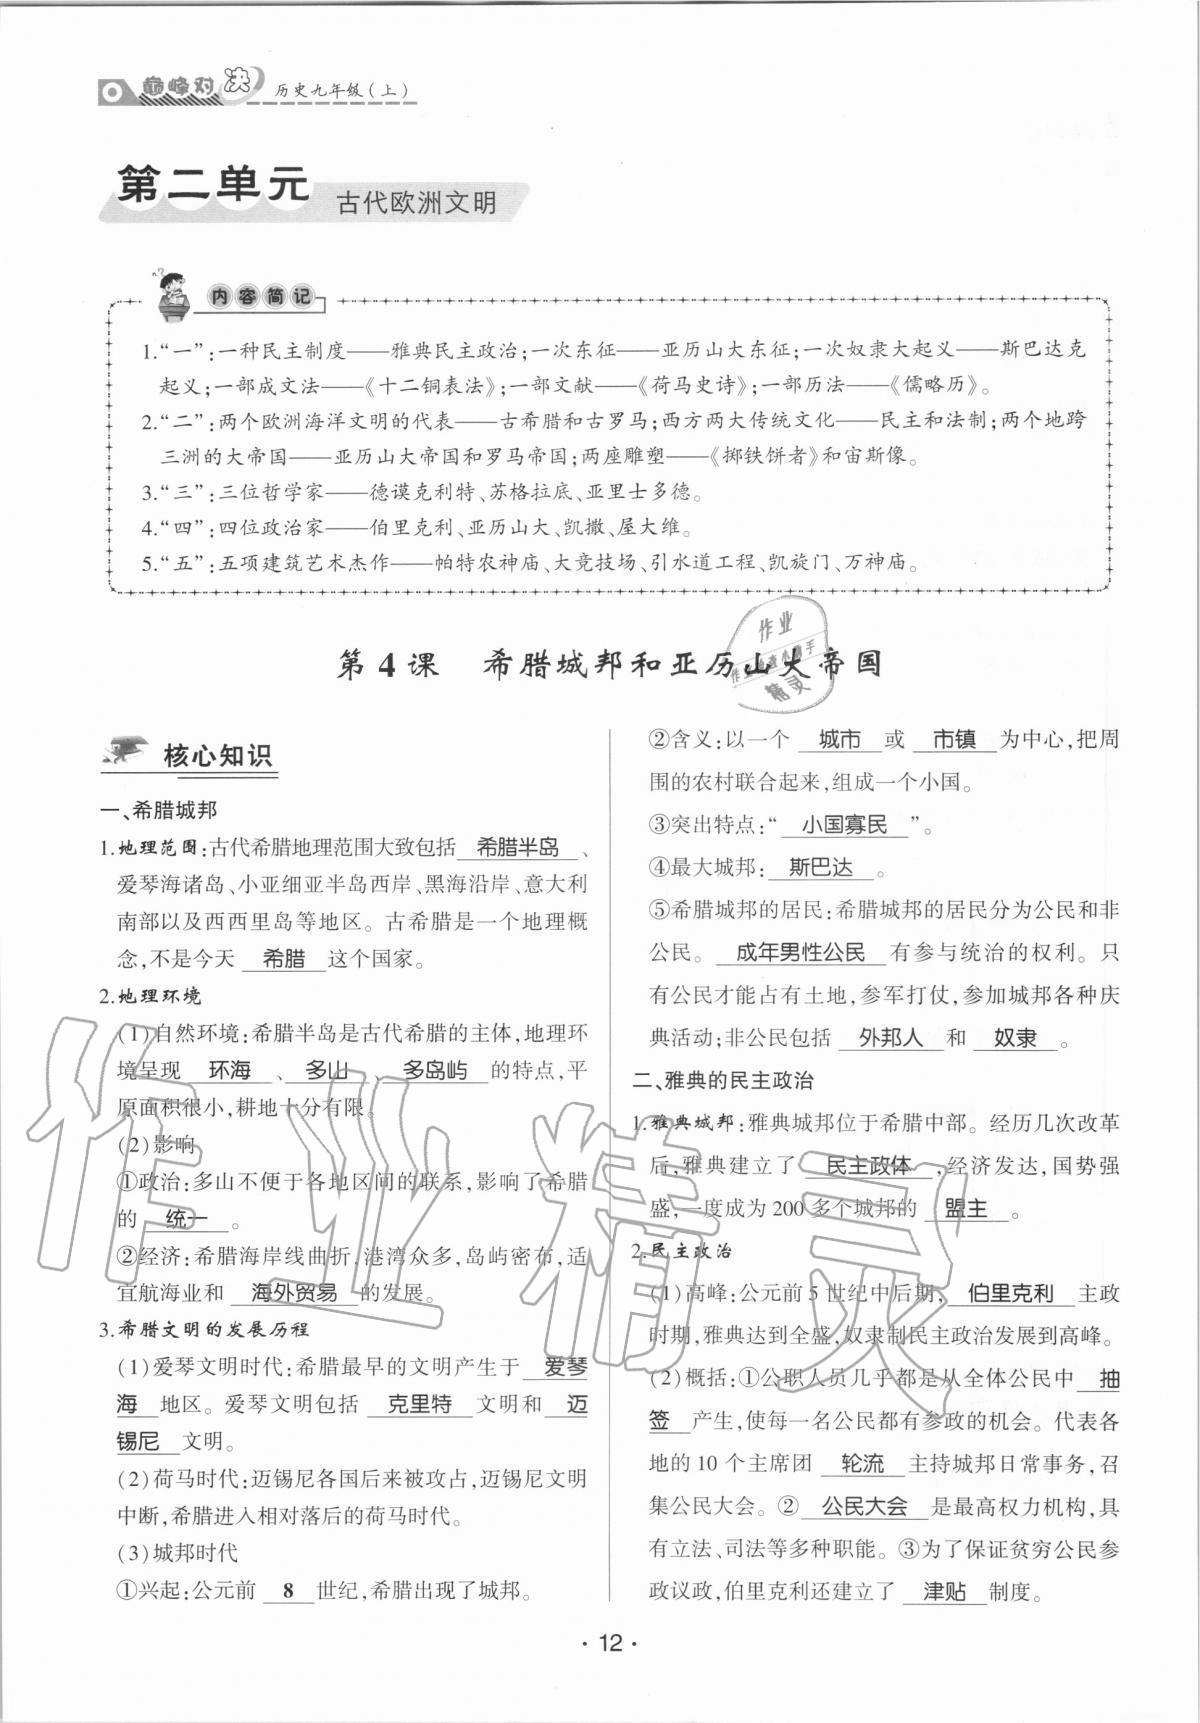 巅峰对决 历史九年级(上)
第二单元
古代欧洲文明
内容简记
1.“一”:一种民主制度——雅典民主政治;一次东征——亚历山大东征;一次奴隶大起义——斯巴达克
起义;一部成文法——《十二铜表法》;一部文献——《荷马史诗》;一部历法——《儒略历》。
2.“二”:两个欧洲海洋文明的代表——古希腊和古罗马;西方两大传统文化——民主和法制;两个地跨
三洲的大帝国——亚历山大帝国和罗马帝国;两座雕塑——《掷铁饼者》和宙斯像。
3.“三”:三位哲学家——德谟克利特、苏格拉底、亚里士多德。
4.“四”:四位政治家——伯里克利、亚历山大、凯撒、屋大维。
5.“五”:五项建筑艺术杰作——帕特农神庙、大竞技场、引水道工程、凯旋门、万神庙。
第4课 希腊城邦和亚历山大帝国
核心知识
一、希腊城邦
1.地理范围:古代希腊地理范围大致包括 希腊半岛 、
爱琴海诸岛、小亚细亚半岛西岸、黑海沿岸、意大利
南部以及西西里岛等地区。古希腊是一个地理概
念,不是今天 希腊 这个国家。
2.地理环境
(1)自然环境:希腊半岛是古代希腊的主体,地理环
境呈现 环海 、 多山 、 多岛屿 的特点,平
原面积很小,耕地十分有限。
(2)影响
①政治:多山不便于各地区间的联系,影响了希腊
的 统一 。
②经济:希腊海岸线曲折,港湾众多,岛屿密布,适
宜航海业和 海外贸易 的发展。
3.希腊文明的发展历程
(1)爱琴文明时代:希腊最早的文明产生于 爱琴
海 地区。爱琴文明包括 克里特 文明和 迈
锡尼 文明。
(2)荷马时代:迈锡尼各国后来被攻占,迈锡尼文明
中断,希腊进入相对落后的荷马时代。
(3)城邦时代
①兴起:公元前 8 世纪,希腊出现了城邦。
②含义:以一个 城市 或 市镇 为中心,把周
围的农村联合起来,组成一个小国。
③突出特点:“ 小国寡民 ”。
④最大城邦: 斯巴达 。
⑤希腊城邦的居民:希腊城邦的居民分为公民和非
公民。 成年男性公民 有参与统治的权利。只
有公民才能占有土地,参军打仗,参加城邦各种庆
典活动;非公民包括 外邦人 和 奴隶 。
二、雅典的民主政治
1.雅典城邦:雅典城邦位于希腊中部。经历几次改革
后,雅典建立了 民主政体 ,经济发达,国势强
盛,一度成为200多个城邦的 盟主 。
2.民主政治
(1)高峰:公元前5世纪中后期, 伯里克利 主政
时期,雅典达到全盛,奴隶制民主政治发展到高峰。
(2)概括:①公职人员几乎都是从全体公民中 抽
签 产生,使每一名公民都有参政的机会。代表各
地的10个主席团 轮流 主持城邦日常事务,召
集公民大会。② 公民大会 是最高权力机构,具
有立法、司法等多种职能。③为了保证贫穷公民参
政议政,伯里克利还建立了 津贴 制度。
·12·
作业精灵
作业
精灵